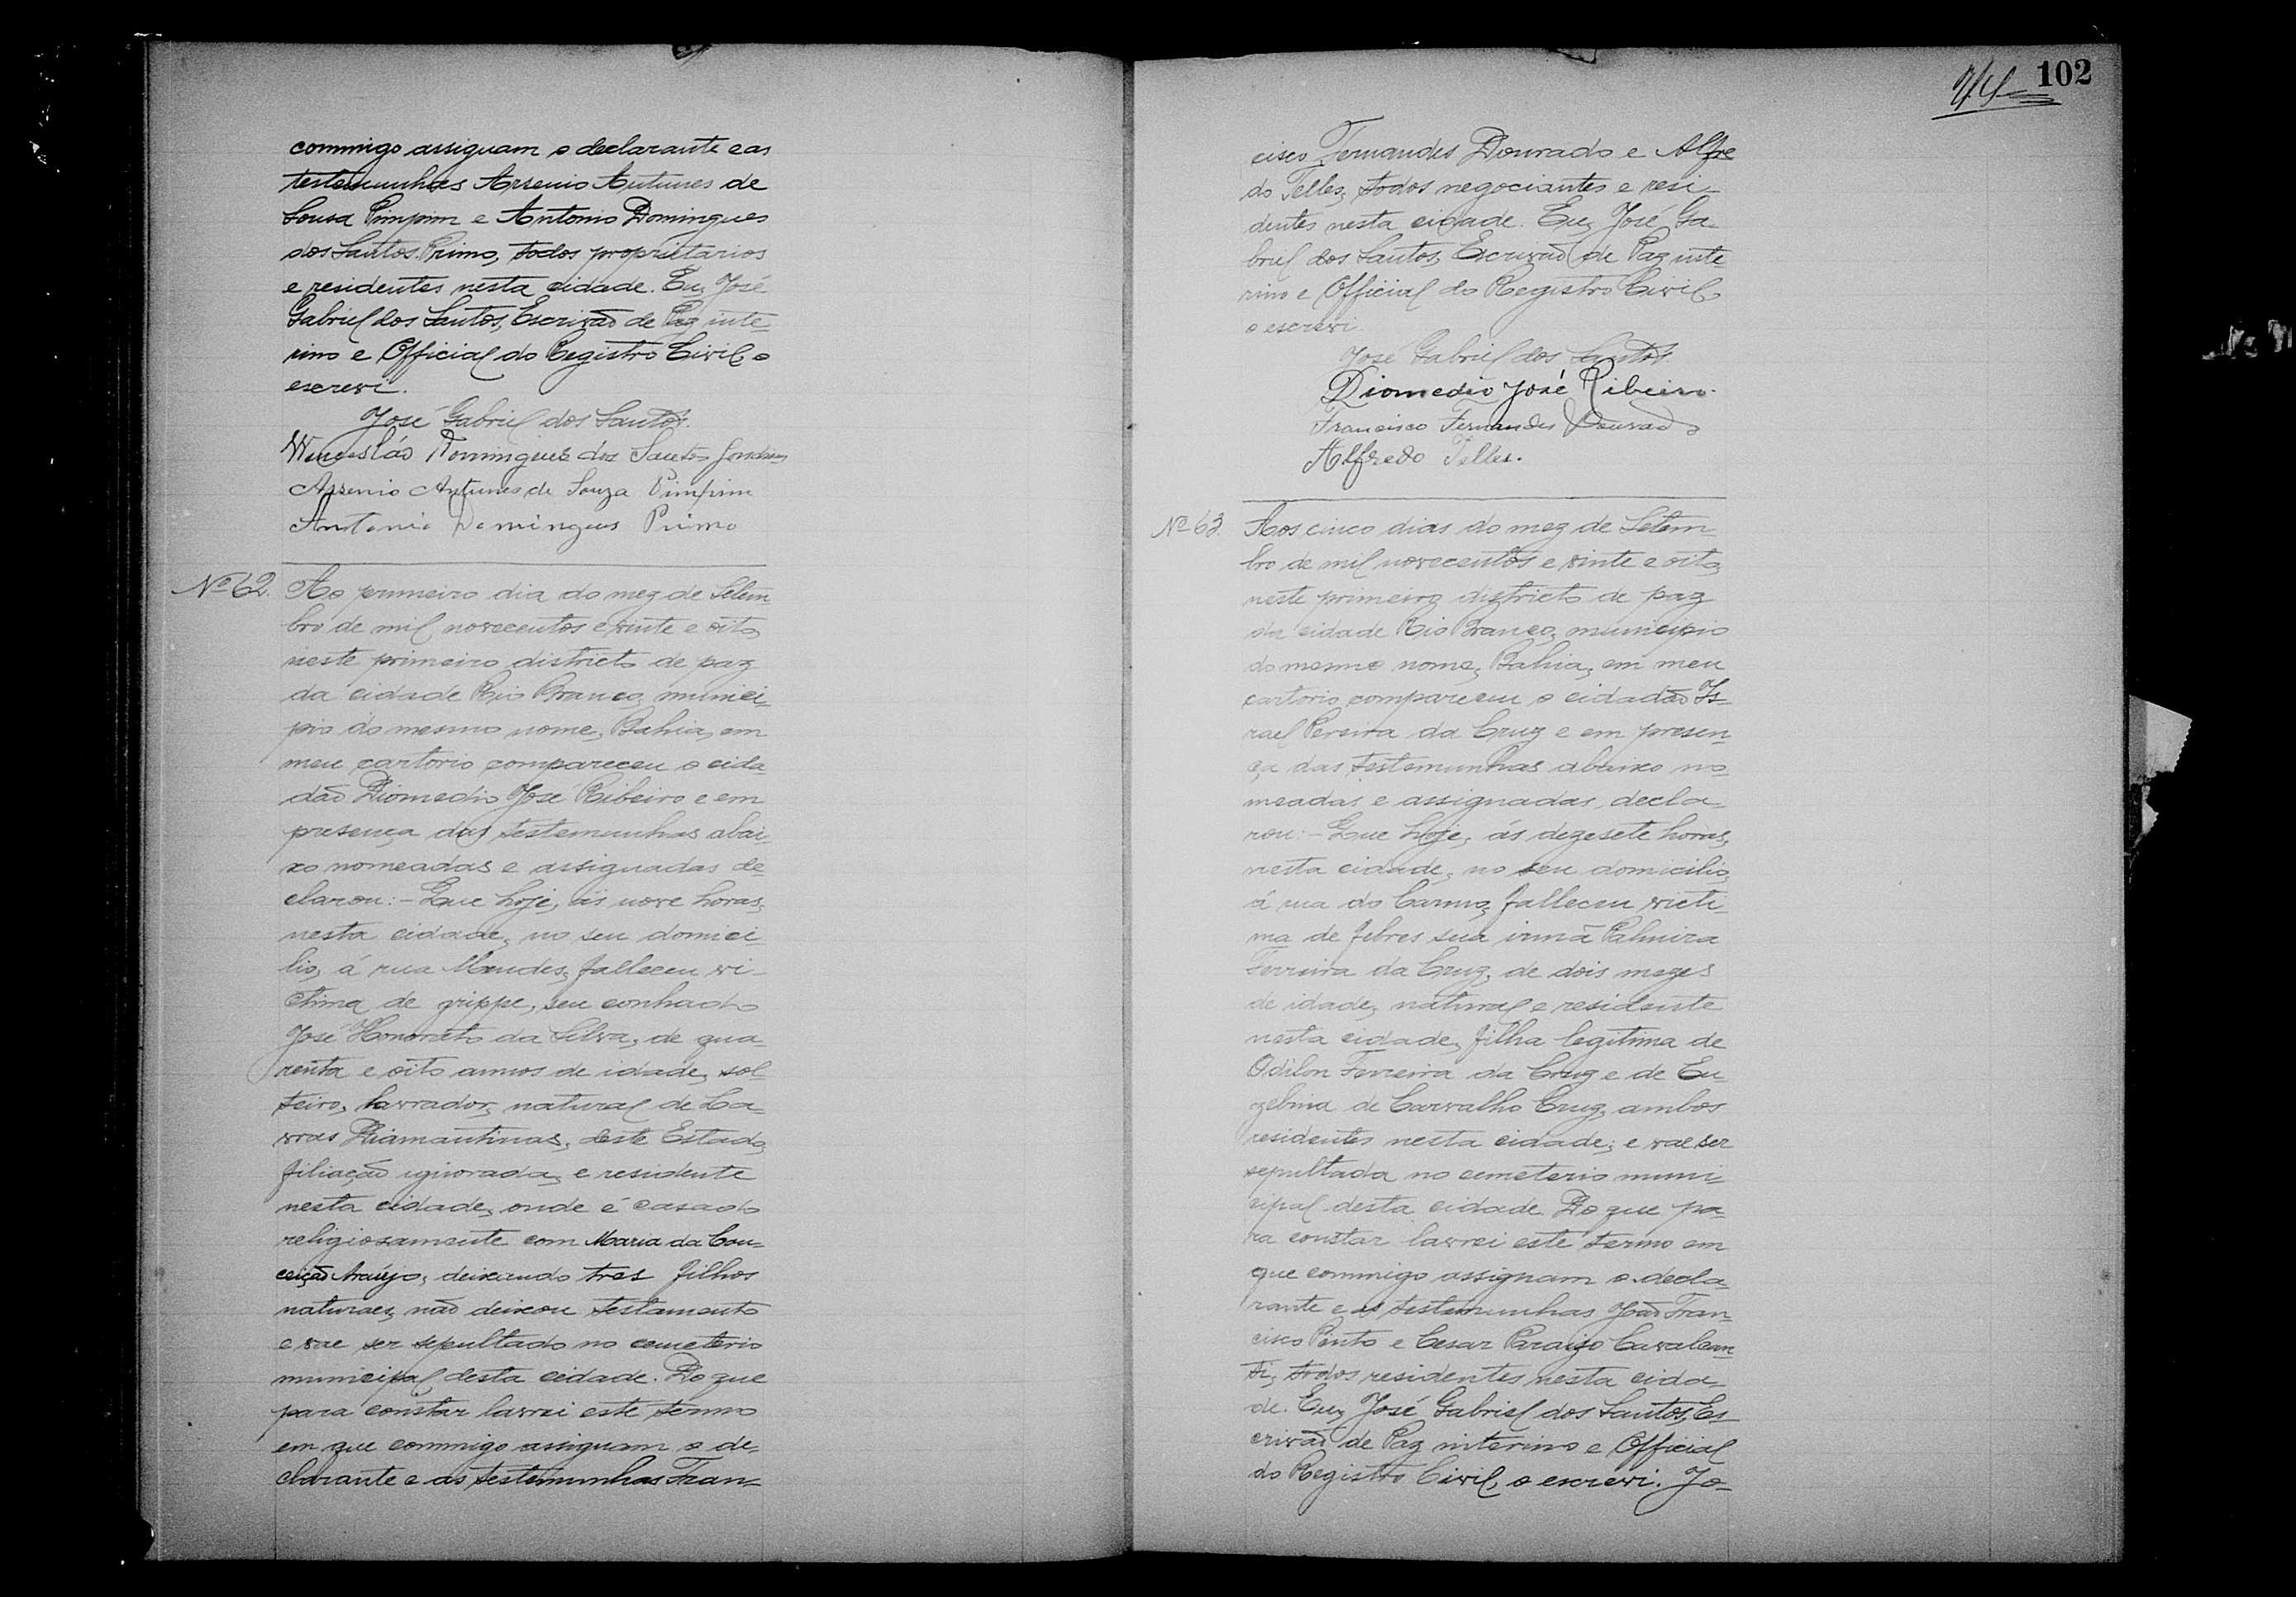 commigo assignam o declarante e as
testemunhas Arsenio Antunes de
Sousa Pimpim e Antonio Domingues
dos Santos Primo, todos proprietarios
e residentes nesta cidade. Eu, José
Gabriel dos Santos, Escrivão de Paz inte-
rino e Official do Registro Civil o
escrevi.
José Gabriel dos Santos.
Domingues dos Santos
Arsenio Antunes de Souza Pimpim
Antonio Domingues Primo
Nº 62. Ao primeiro dia do mez de Setem
bro de mil novecentos e vinte e oito,
neste primeiro districto de paz
da cidade Rio Branco, munici-
pio do mesmo nome, Bahia, em
meu cartorio compareceu o cida-
dão Diomedio José Ribeiro e em
presença das testemunhas abai-
xo nomeadas e assignadas de-
clarou: - Que hoje, ás nove horas,
nesta cidade, no seu domici-
lio, á rua Mendes, falleceu vi-
ctima de grippe, seu conhado
José Honorato da Silva, de qua-
renta e oito annos de idade, sol-
teiro, lavrador, natural de La-
vras Diamantinas, deste Estado,
filiação ignorada, e residente
nesta cidade, onde é casado
religiosamente com Maria da Con-
ceição Araújo, deixando tres filhos
naturaes, não deixou testamento
e vae ser sepultado no cemeterio
municipal desta cidade. Do que
para constar lavrei este termo
em que commigo assignam o de-
clarante e as testemunhas Fran-
44 102
cisco Fernandes Dourado e Alfre
do Telles, todos negociantes e resi-
dentes nesta cidade. Eu, José Ga-
briel dos Santos, Escrivão de Paz inte-
rino e Official do Registro Civil,
o escrevi
José Gabriel dos Santos
Diomedio José Ribeiro.
Francisco Fernandes Dourado
Alfredo Telles.
Nº 63. Aos cinco dias do mez de Setem-
bro de mil novecentos e vinte e oito,
neste primeiro districto de paz
da cidade Rio Branco, municipio
do mesmo nome, Bahia, em meu
cartorio compareceu o cidadão Is-
rael Pereira da Cruz e em presen-
ça das testemunhas abaixo no-
meadas e assignadas, decla-
rou: - Que hoje, ás dezesete horas,
nesta cidade, no seu domicilio,
á rua do Carmo, falleceu victi-
ma de febres sua irmã Palmira
Ferreira da Cruz, de dois mezes
de idade, natural e residente
nesta cidade, filha legitima de
Odilon Ferreira da Cruz e de Eu-
zebina de Carvalho Cruz, ambos
residentes nesta cidade; e vae ser
sepultada no cemeterio muni-
cipal desta cidade. Do que pa-
ra constar lavrei este termo em
que commigo assignam o decla-
rante e as testemunhas João Fran-
cisco Pinto e Cesar Paraizo Cavalcan-
ti, todos residentes nesta cida-
de. Eu, José Gabriel dos Santos, Es-
crivão de Paz interino e Official
do Registro Civil, o escrevi. Jo-